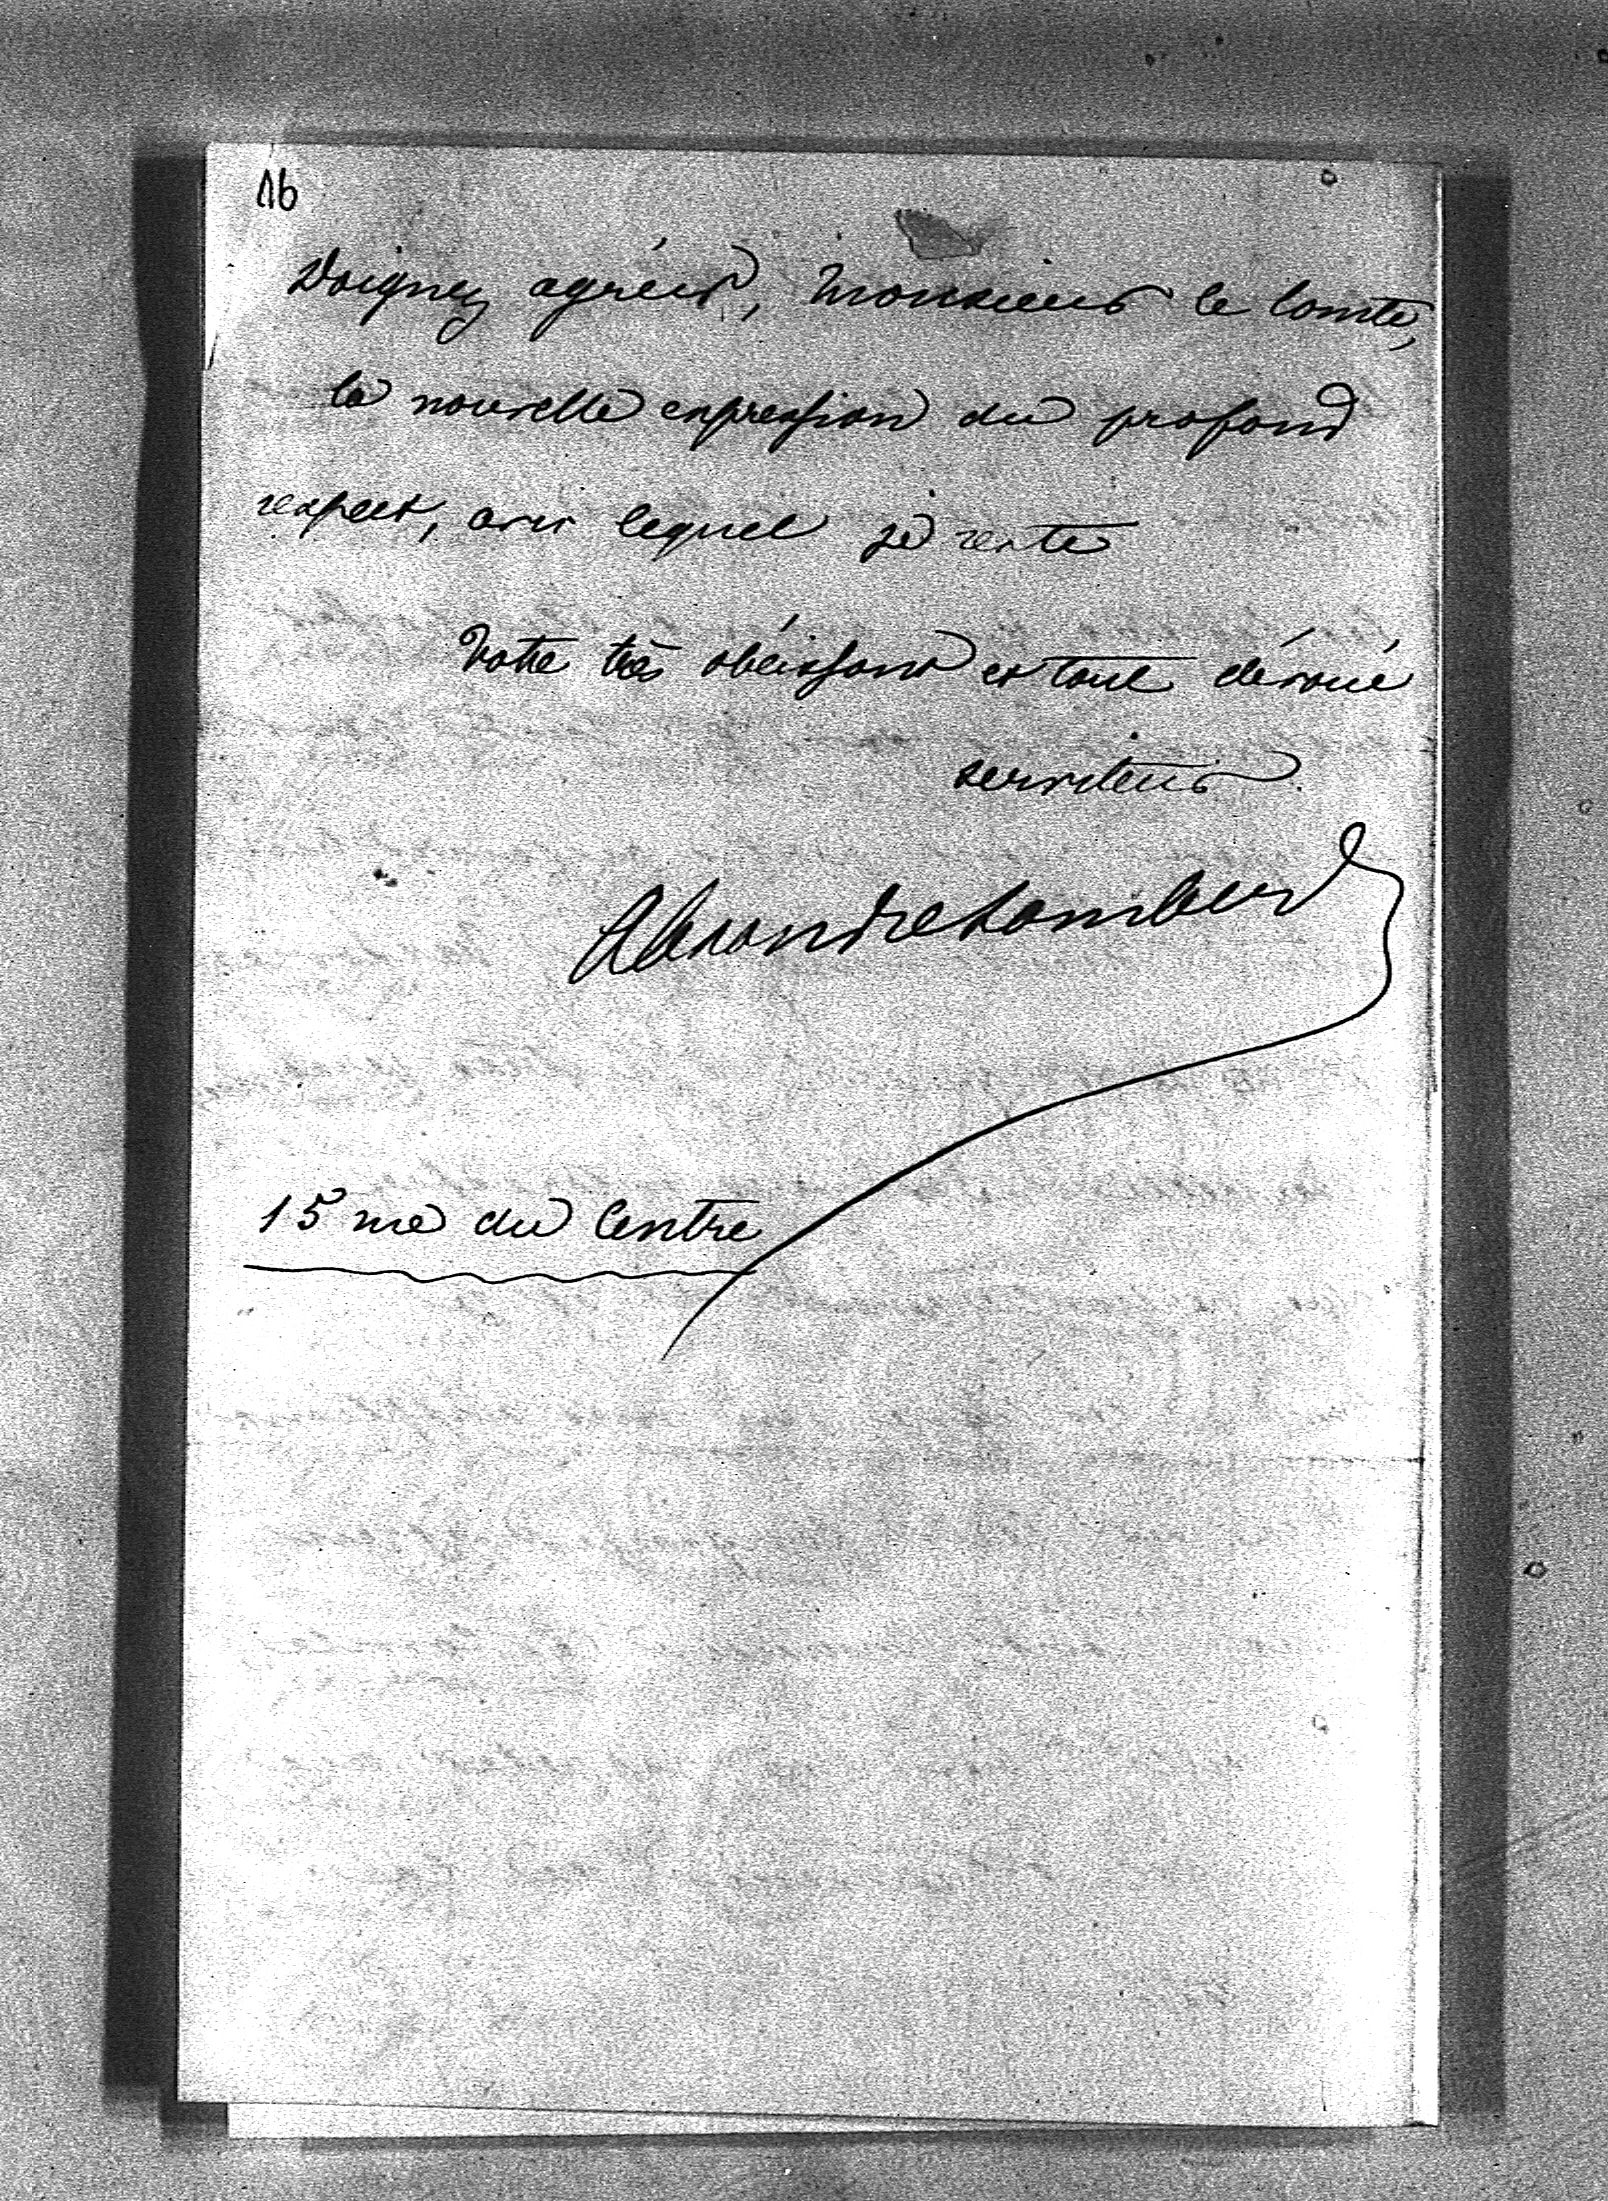 16
Daignez agréer, Monsieur le Comte,
la nouvelle expression du profond
respect, avec lequel je reste
Votre très obéissant et tout dévoué
serviteur.
Alexandre Lambert
15 rue du Centre